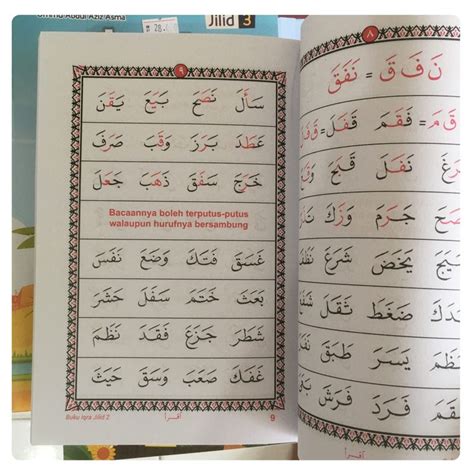 Jilid 3
٩
سَأَلَ نَصَحَ بَيَعَ يَقَنَ
عَطَدَ بَرَزَ وَقَبَ صَرَفَ
خَرَجَ سَفَقَ ذَهَبَ جَعَلَ
Bacaannya boleh terputus-putus
walaupun hurufnya bersambung
غَسَقَ فَتَكَ وَضَعَ نَفَسَ
بَعَثَ خَتَمَ سَفَلَ حَشَرَ
شَطَرَ جَزَعَ فَقَدَ نَظَمَ
غَفَكَ صَعَبَ وَسَقَ حَيَثَ
Buku Iqra Jilid 2 اقرأ 9
٨
نَ فَ قَ = نَفَقَ
قَ مَ = فَقَمَ قَفَلَ =
نَفَلَ قَبَحَ
جَرَمَ وَزَكَ
يَخَضَ شَرَعَ
ضَغَطَ ثَقَلَ
يَسَرَ طَبَقَ
فَرَدَ فَرَشَ
اقرأ